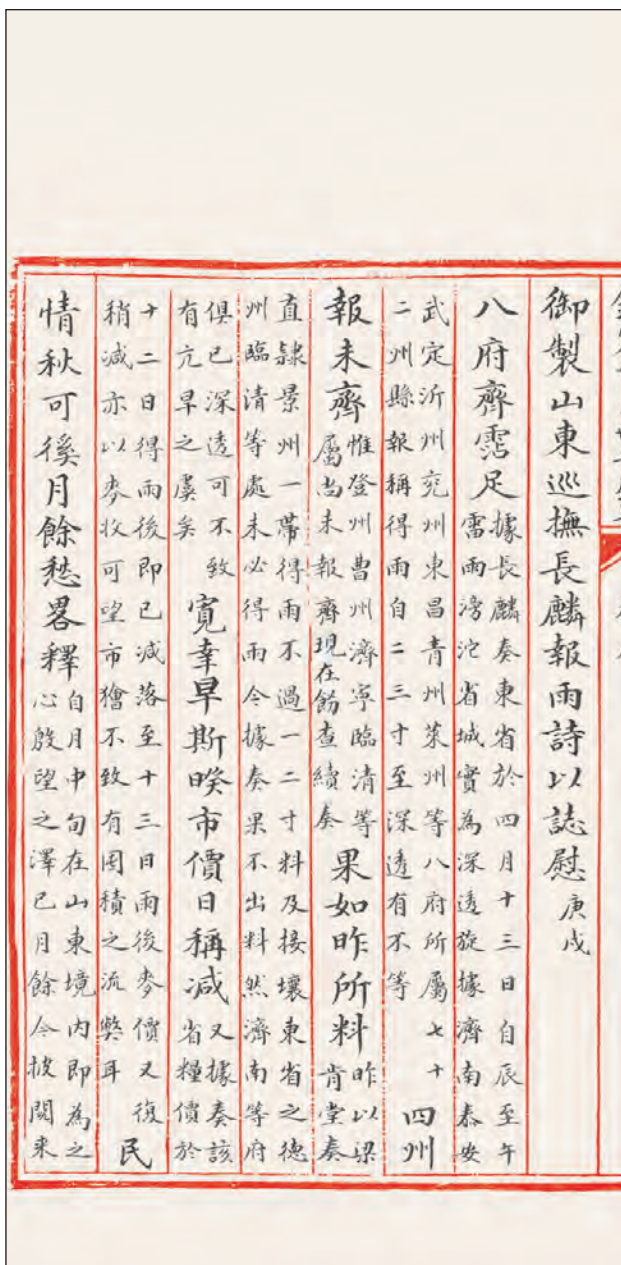 御製山東巡撫長麟報雨詩以誌慰庚戌
八府齊霑足
據長麟奏東省於四月十三日自辰至午
雷雨滂沱省城實為深透旋據濟南泰安
武定沂州兗州東昌青州萊州等八府所屬七十
二州縣報稱得雨自二三寸至深透有不等
四州
報未齊
惟登州曹州濟寧臨清等
屬尚未報齊現在飭查續奏
果如昨所料
昨以梁
肯堂奏
直隸景州一帶得雨不過一二寸料及接壤東省之德
州臨清等處未必得雨今據奏果不出料然濟南等府
俱已深透可不致
有亢旱之虞矣
寬幸早斯暌市價日稱减
又據奏該
省糧價於
十二日得雨後即已減落至十三日雨後麥價又復
稍減亦以麥收可望市獪不致有囤積之流弊耳
民
情秋可徯月餘愁畧釋
自月中旬在山東境内即為之
心殷望之澤已月餘今披閱来